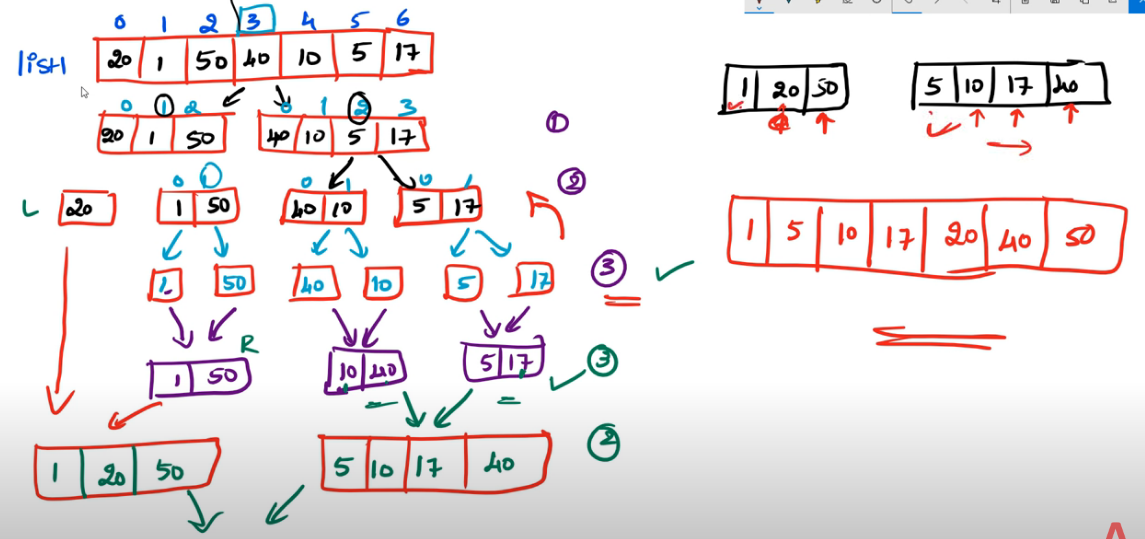 0 1 2 3 4 5 6
list1 20 1 50 40 10 5 17
0 1 2 0 1 2 3
20 1 50 40 10 5 17 1
0 1 0 1 0 1 2
L 20 1 50 40 10 5 17
1 50 40 10 5 17 3
R
1 50 10 40 5 17 3
1 20 50 5 10 17 40 2
1 20 50 5 10 17 40
1 5 10 17 20 40 50
A